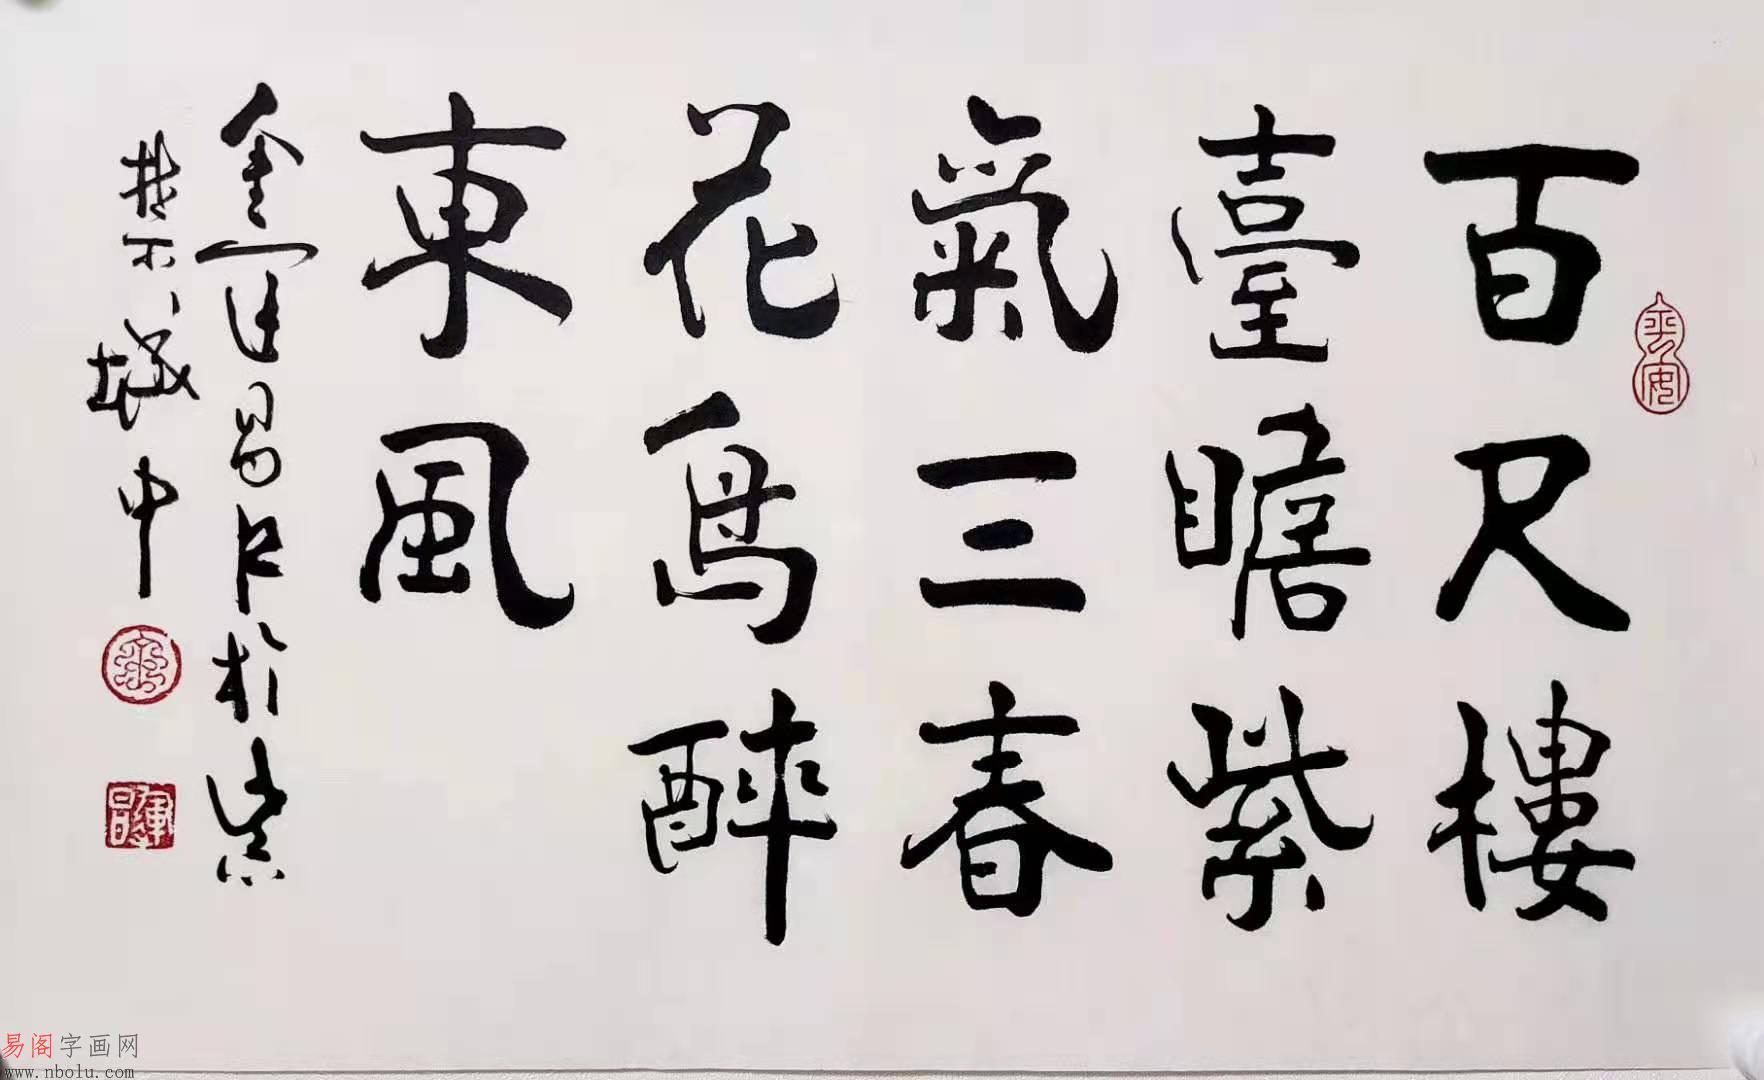 百尺樓
臺瞻紫
氣三春
花鳥醉
東風
於紫
禁城中
平安
易阁字画网
www.nbolu.com